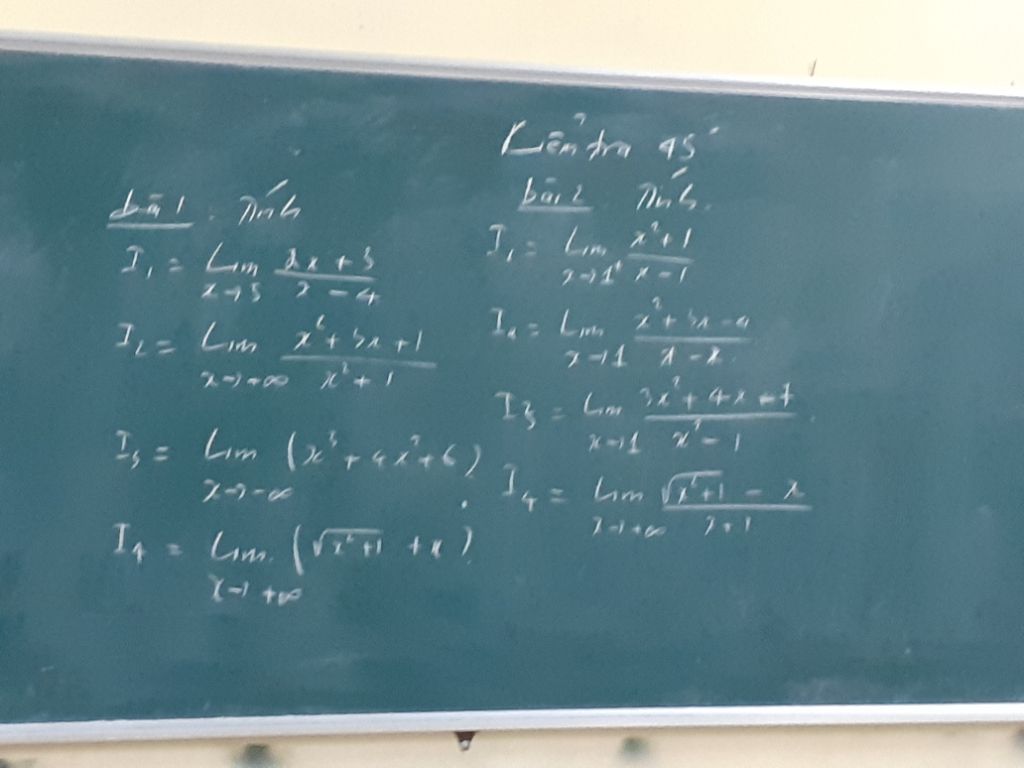 Kiểm tra 45'
bài 1. Tính
I₁ = Lim x→3 (2x + 3)/(x - 4)
I₂ = Lim x→+∞ (x² + 3x + 1)/(x² + 1)
I₃ = Lim x→-∞ (x³ + 4x² + 6)
I₄ = Lim x→+∞ (√(x² + 1) + x)
bài 2. Tính.
I₁ = Lim x→1⁺ (x² + 1)/(x - 1)
I₂ = Lim x→1 (x² + 3x - 4)/(1 - x)
I₃ = Lim x→1 (3x² + 4x - 7)/(x² - 1)
I₄ = Lim x→+∞ (√(x² + 1) - x)/(x + 1)